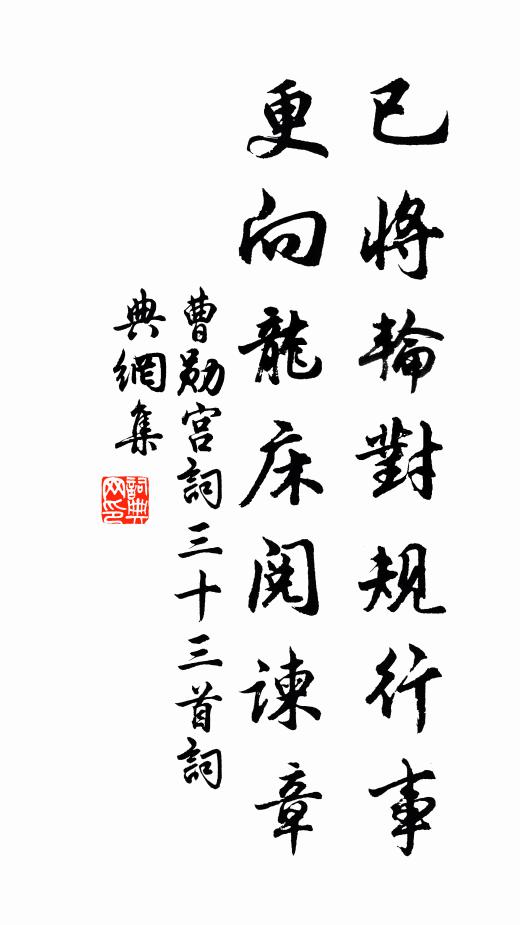 已將輪對規行事
更向龍床閱諫章
曹勛宮詞三十三首詞
典網集
詞典網印